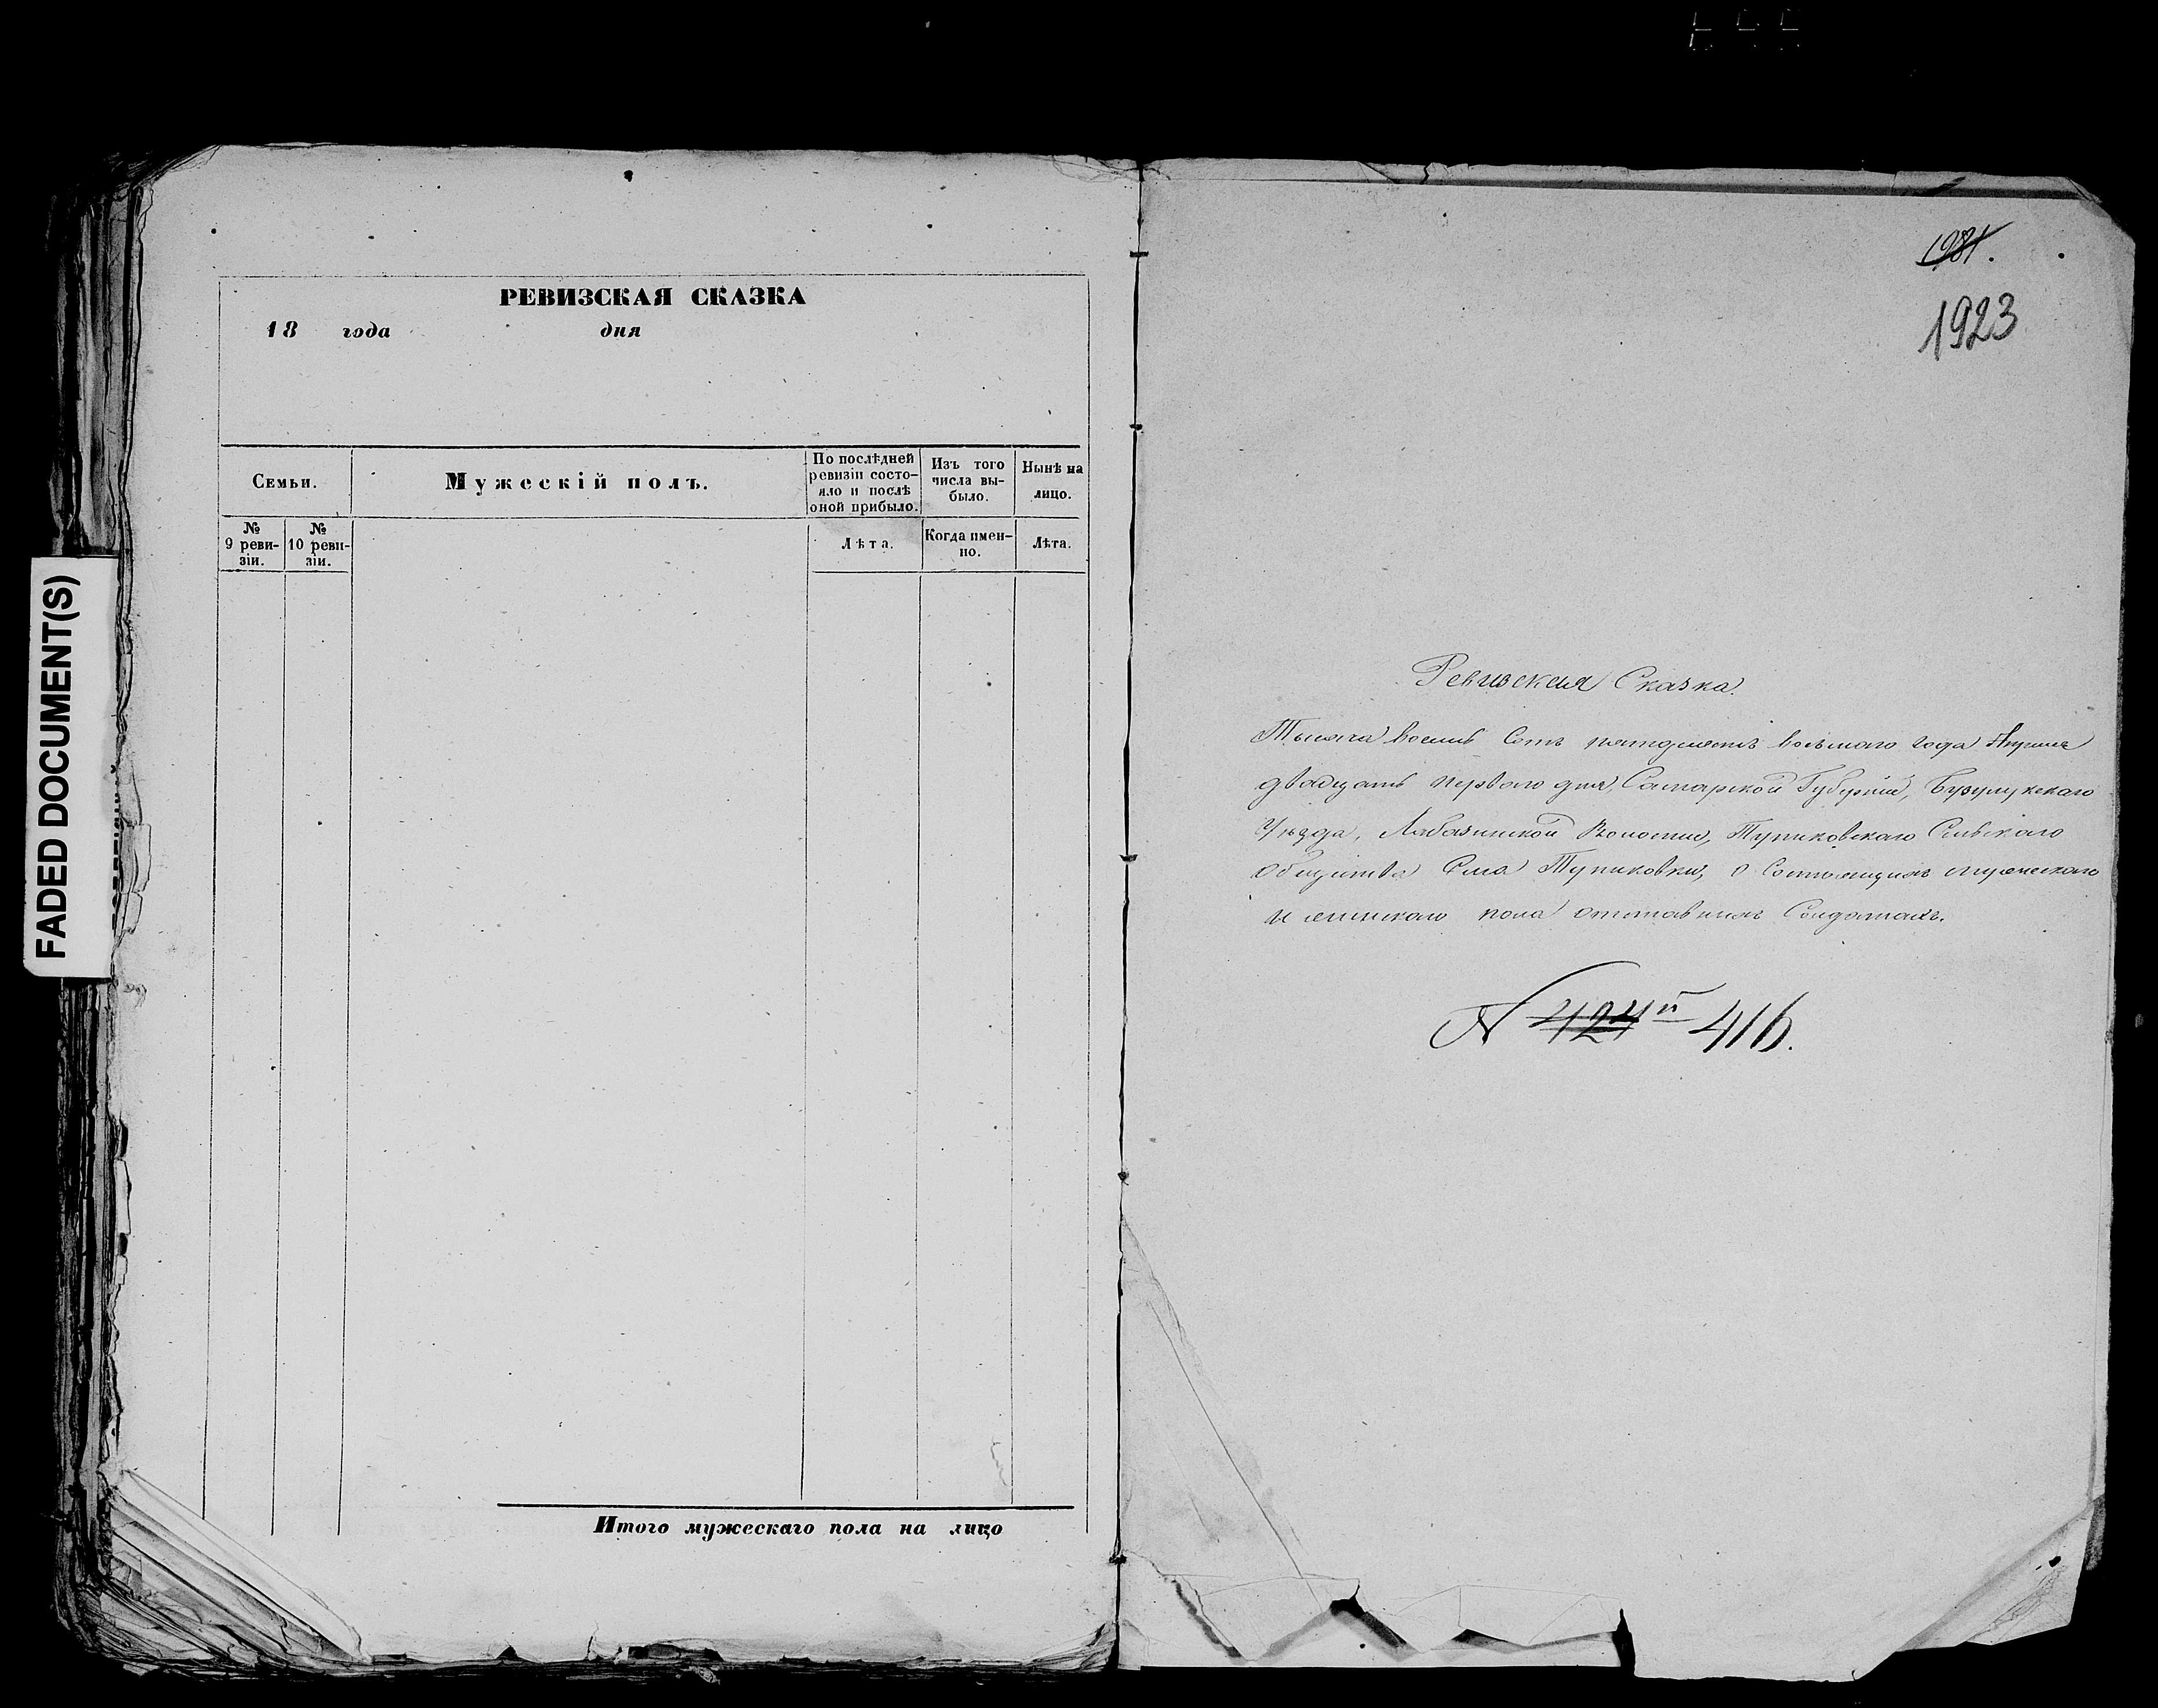 FADED DOCUMENT(S)
РЕВИЗСКАЯ СКАЗКА
18 года дня
Семьи.
Мужескій полъ.
По послѣдней
ревизіи состо-
яло и послѣ
оной прибыло.
Изъ того
числа вы-
было.
Нынѣ на
лицо.
№
9 реви-
зіи.
№
10 реви-
зіи.
Лѣта.
Когда имен-
но.
Лѣта.
Итого мужескаго пола на лицо
1981.
1923
Ревизская Сказка.
Тысяча восемь Сотъ пятьдесятъ восьмаго года Апрѣля
двадцать перваго дня, Самарской Губерніи, Бузулукскаго
Уѣзда, Лабазинской Волости, Тупиковскаго Сельскаго
общества Села Тупиковки, о Состоящихъ мужескаго
и женскаго пола отставныхъ Солдатахъ.
N 424й 416.